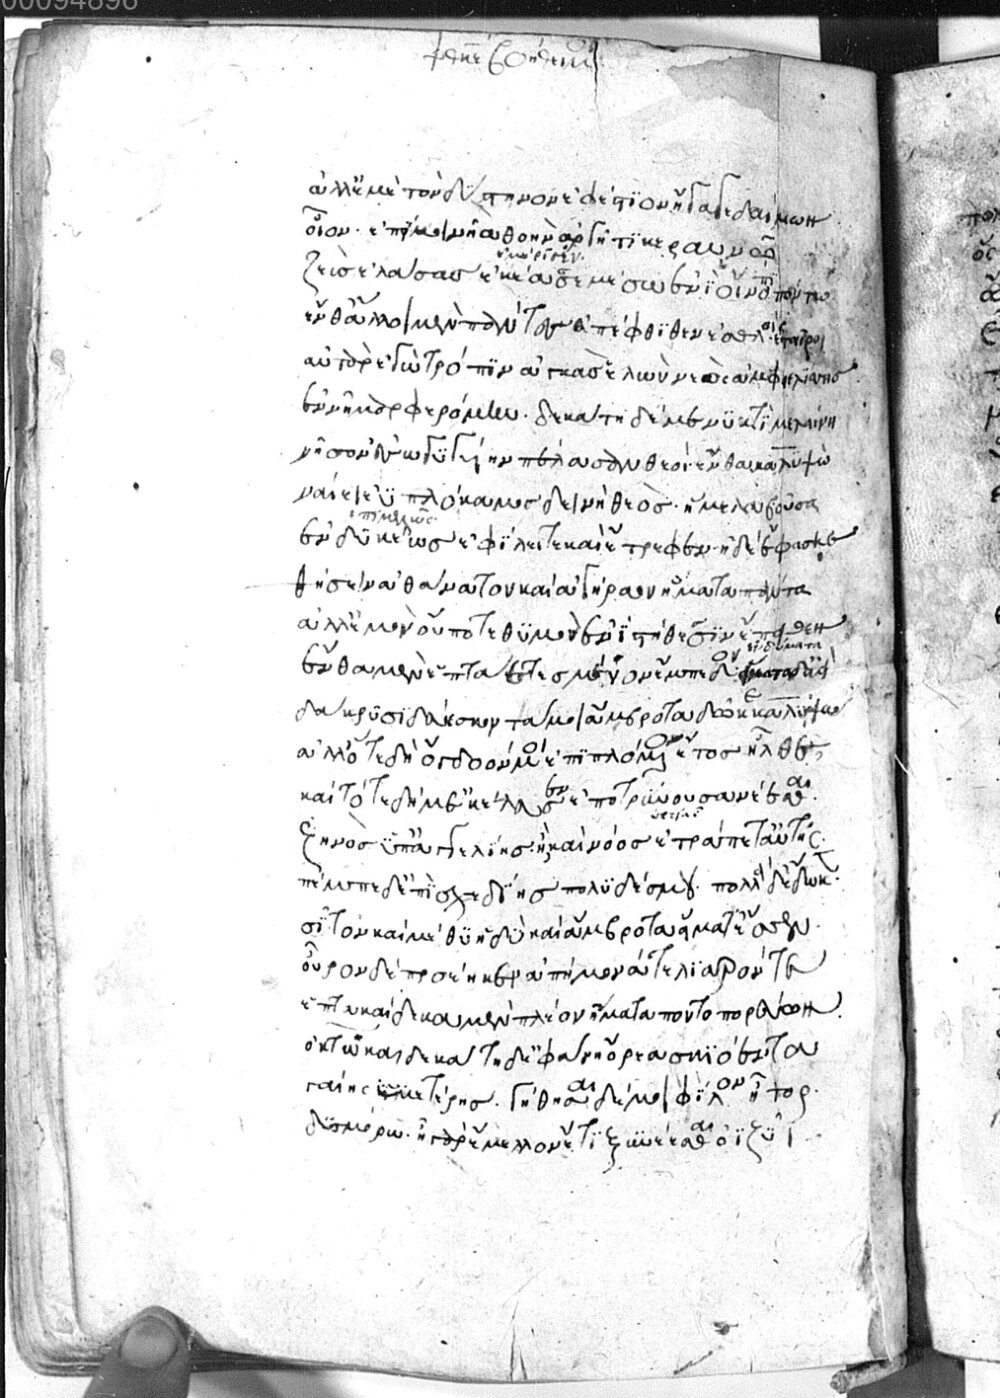 00094896
ἀλλ' ἐμὲ τὸν δύστηνον ἐφέστιον ἤγαγε δαίμων
οἶον· ἐπεί μοι νῆα θοὴν ἀργῆτι κεραυνῷ
ἐκέρασεν
ζεὺς ἐλάσας ἐκέασσε μέσῳ ἐνὶ οἴνοπι πόντῳ
ἔνθ' ἄλλοι μὲν πάντες ἀπέφθιθεν ἐσθλοὶ ἑταῖροι
αὐτὰρ ἐγὼ τρόπιν ἀγκὰς ἑλὼν νεὸς ἀμφιελίσσης
ἐννῆμαρ φερόμην· δεκάτῃ δέ με νυκτὶ μελαίνῃ
νῆσον ἐς ὠγυγίην πέλασαν θεοὶ ἔνθα καλυψὼ
ναίει ἐϋπλόκαμος δεινὴ θεός· ἥ με λαβοῦσα
ἐνδυκέως ἐφίλει τε καὶ ἔτρεφεν· ἠδὲ ἔφασκε
θήσειν ἀθάνατον καὶ ἀγήραον ἤματα πάντα
ἀλλ' ἐμὸν οὔποτε θυμὸν ἐνὶ στήθεσσιν ἔπειθεν
ἔνθα μὲν ἑπτάετες μένον ἔμπεδον εἵματα δ' αἰεὶ
δάκρυσι δεύεσκον τά μοι ἄμβροτα δῶκε καλυψώ
ἀλλ' ὅτε δὴ ὄγδοόν μοι ἐπιπλόμενον ἔτος ἦλθε
καὶ τότε δή με κέλευσεν ἐποτρύνουσα νέεσθαι.
ζηνὸς ὑπ' ἀγγελίης· ἢ καὶ νόος ἐτράπετ' αὐτῆς.
πέμπε δ' ἐπὶ σχεδίης πολυδέσμου· πολλὰ δ' ἔδωκε.
σῖτον καὶ μέθυ ἡδὺ καὶ ἄμβροτα εἵματα ἕσσεν.
οὖρον δὲ προέηκεν ἀπήμονά τε λιαρόν τε
ἑπτακαίδεκα μὲν πλέον ἤματα ποντοπορεύων.
ὀκτωκαιδεκάτῃ δ' ἐφάνη ὄρεα σκιόεντα
γαίης ὑμετέρης· γήθησε δέ μοι φίλον ἦτορ.
δυσμόρῳ· ἦ γὰρ ἔμελλον ἔτι ξυνέσεσθαι ὀϊζυῖ